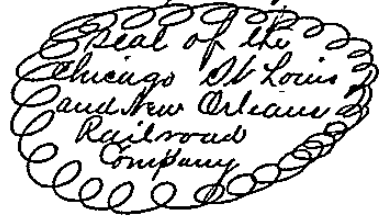 Seal of the
Chicago St Louis
and New Orleans
Railroad
Company